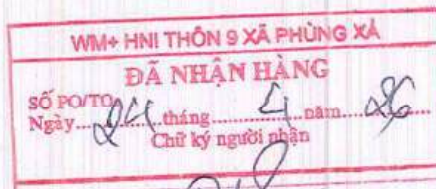 WM+ HNI THÔN 9 XÃ PHÙNG XÁ
ĐÃ NHẬN HÀNG
SỐ PO/TO
Ngày...24...tháng...4...năm...26
Chữ ký người nhận